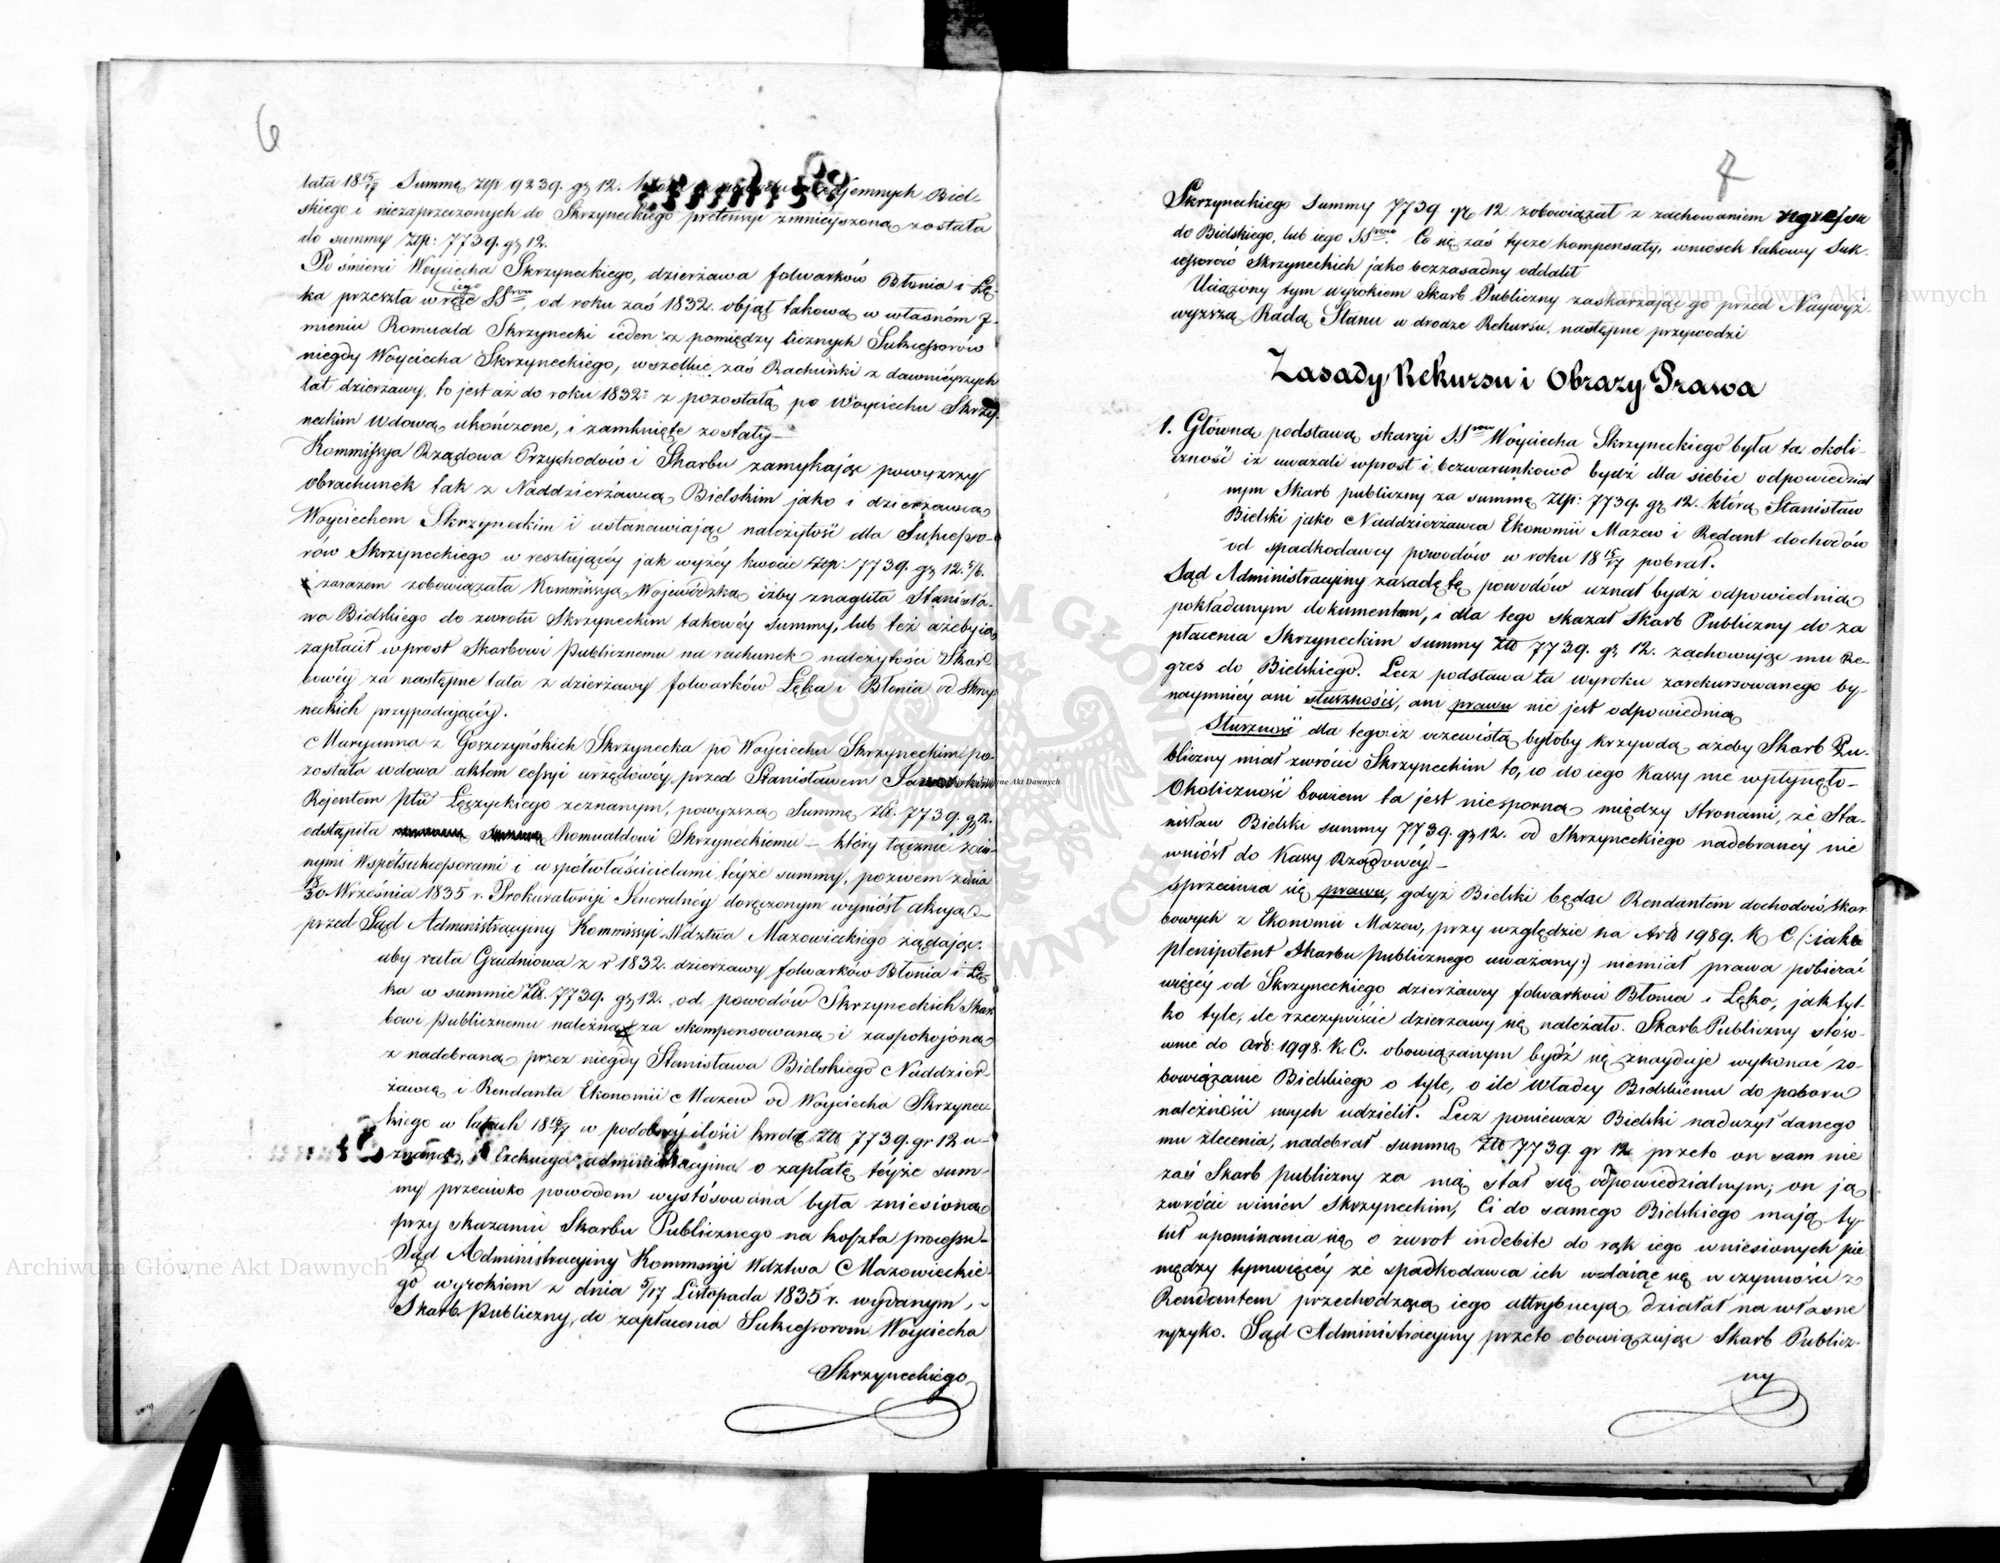 6
lata 18 15/17 Summą Złp 9239. gr 12. wzajemnych Biel-
skiego i niezaprzeczonych do Skrzyneckiego pretensyi zmnieyszoną została
do summy Złp: 7739. gr 12.
Po śmierci Woyciecha Skrzyneckiego, dzierżawa folwarków Błonia i Łę-
ka przeszła w ręce iego SSrow, od roku zaś 1832. objął takową w własném J-
mieniu Romuald Skrzynecki ieden z pomiędzy licznych Sukcessorów
niegdy Woyciecha Skrzyneckiego, wszelkie zaś Rachunki z dawnieyszych
lat dzierżawy, to jest aż do roku 1832 z pozostałą po Woyciechu Skrzy-
neckim wdową ukończone, i zamknięte zostały_
Kommissya Rządowa Przychodów i Skarbu zamykając powyższy
obrachunek tak z Naddzierżawcą Bielskim jako i dzierżawcą
Woyciechem Skrzyneckim i ustanawiając należytość dla Sukcesso-
rów Skrzyneckiego w resztującéy jak wyżéy kwocie Złp: 7739. gr 12. 5/6.
zarazem zobowiązała Kommissyą Wojewódzką iżby znagliła Stanisła-
wa Bielskiego do zwrotu Skrzyneckim takowéy summy, lub też ażeby ią
zapłacił wprost Skarbowi Publicznemu na rachunek należytości Skar-
bowéy za następne lata z dzierżawy folwarków Łęka i Błonia od Skrzy
neckich przypadającéy.
Maryanna z Goszczyńskich Skrzynecka po Woyciechu Skrzyneckim po-
została wdowa aktem cessyi urzędowéy przed Stanisławem
Rejentem Ptu Łęczyckiego zeznanym, powyższą Summę Złt. 7739. gr 12.
odstąpiła Romualdowi Skrzyneckiemu — który łącznie z in-
nymi Współsukcessorami i współwłaścicielami téyże summy, pozwem z dnia
18/30 Września 1835 r. Prokuratoryi Jeneralnéy doręczonym wyniósł akcyą
przed Sąd Administracyjny Kommissyi Wdztwa Mazowieckiego żądając.
aby rata Grudniowa z r 1832. dzierżawy folwarków Błonia i Łę-
ka w summie Złt. 7739. gr 12. od powodów Skrzyneckich Skar
bowi Publicznemu należna za skompensowaną i zaspokojoną
z nadebraną przez niegdy Stanisława Bielskiego Naddzier-
żawcą i Rendanta Ekonomii Mazew od Woyciecha Skrzynec-
kiego w latach 18 15/17 w podobnéj ilości kwotą Złt 7739. gr 12 u-
znaną, Exekucya administracyjna o zapłatę téyże sum-
my przeciwko powodom wystósowana była zniesioną
przy skazaniu Skarbu Publicznego na koszta processu_
Sąd Administracyjny Kommissyi Wdztwa Mazowieckie-
go wyrokiem z dnia 5/17 Listopada 1835 r. wydanym,
Skarb Publiczny, do zapłacenia Sukcessorom Woyciecha
Skrzyneckiego
7
Skrzyneckiego Summy 7739 gr 12. zobowiązał z zachowaniem regressu
do Bielskiego, lub iego SSrow. Co się zaś tycze kompensaty, wniosek takowy Suk-
cessorów Skrzyneckich jako bezzasadny oddalił
Uciążony tym wyrokiem Skarb Publiczny zaskarżając go przed Naywyż-
wyższą Radą Stanu w drodze Rekursu, następne przywodzi
Zasady Rekursu i Obrazy Prawa
1. Główną podstawą skargi SSrow Woyciecha Skrzyneckiego była ta okoli-
czność iż uważali wprost i bezwarunkowo bydź dla siebie odpowiedzial
nym Skarb publiczny za summę Złp: 7739. gr 12. którą Stanisław
Bielski jako Naddzierżawca Ekonomii Mazew i Redant dochodów
od spadkodawcy powodów w roku 18 15/17 pobrał.
Sąd Administracyiny zasadę tę powodów uznał bydź odpowiednią
pokładanym dokumentom, i dla tego skazał Skarb Publiczny do za
płacenia Skrzyneckim summy Złt 7739. gr 12. zachowując mu Re-
gres do Bielskiego. Lecz podstawa ta wyroku zarekursowanego by-
naymniéy ani słuszności, ani prawu nie jest odpowiednią
Słuszności dla tego iż oczewistą byłoby krzywdą ażeby Skarb Pu-
bliczny miał zwrócić Skrzyneckim to, co do iego Kassy nie wpłynęło_
Okoliczność bowiem ta jest niesporną między stronami, że Sta-
nisław Bielski summy 7739. gr 12. od Skrzyneckiego nadebranéy nie
wniósł do Kassy Rządowéy_
Sprzeciwia się prawu, gdyż Bielski będąc Rendantem dochodów Skar-
bowych z Ekonomii Mazew, przy względzie na Art 1989. K C (: jako
plenipotent Skarbu publicznego uważany :) niemiał prawa pobierać
więcéy od Skrzyneckiego dzierżawcy folwarków Błonia i Łęka, jak tyl-
ko tyle, ile rzeczywiście dzierżawy się należało. Skarb Publiczny stóso-
wnie do Art: 1998. K. C. obowiązanym bydź się znayduje wykonać zo-
bowiązanie Bielskiego o tyle, o ile władzy Bielskiemu do poboru
należności innych udzielił. Lecz ponieważ Bielski nadużył danego
mu zlecenia, nadebrał summę Złt 7739. gr 12 przeto on sam nie
zaś Skarb publiczny za nią stał się odpowiedzialnym; on ją
zwrócić winien Skrzyneckim, Ci do samego Bielskiego mają ty-
tuł upominania się o zwrot indebite do rąk iego wniesionych pie
niędzy tymwięcéy że spadkodawca ich wdaiąc się w czynności z
Rendantem przechodzącą iego attrybucyą działał na własne
ryzyko. Sąd Administracyiny przeto obowiązując Skarb Publicz-
ny
Archiwum Główne Akt Dawnych
Archiwum Główne Akt Dawnych